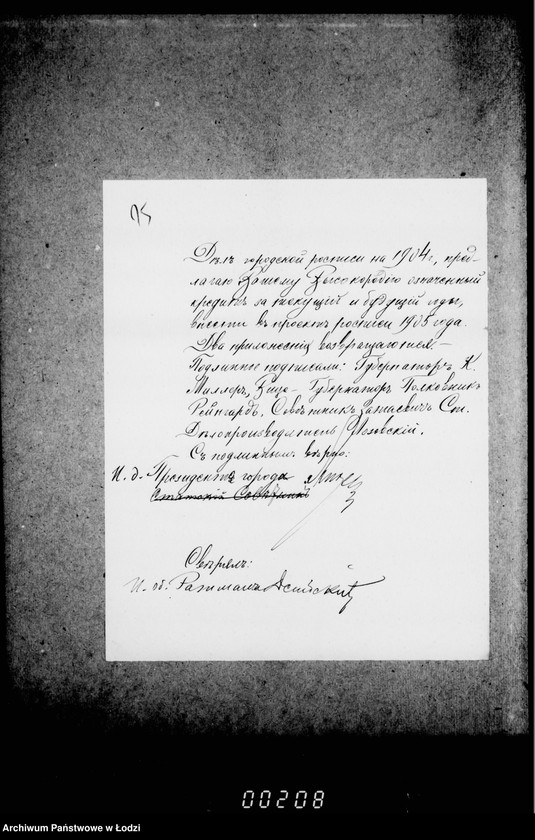 95
Дѣлъ городской росписи на 1904 г., пред-
лагаю Вашему Высокородію означенный
кредитъ за текущій и будущій годы,
внести въ проектъ росписи 1905 года.
Два приложенія возвращаются.-
Подлинное подписали: Губернаторъ К.
Миллеръ, Вице-Губернаторъ Полковникъ
Рейнгардъ, Совѣтникъ Затаевичъ Ст.
Дѣлопроизводитель
Съ подлиннымъ вѣрно:
И. д. Президента города
Статскій Совѣтникъ
Свѣрялъ:
И. об. Ратмана
00208
Archiwum Państwowe w Łodzi